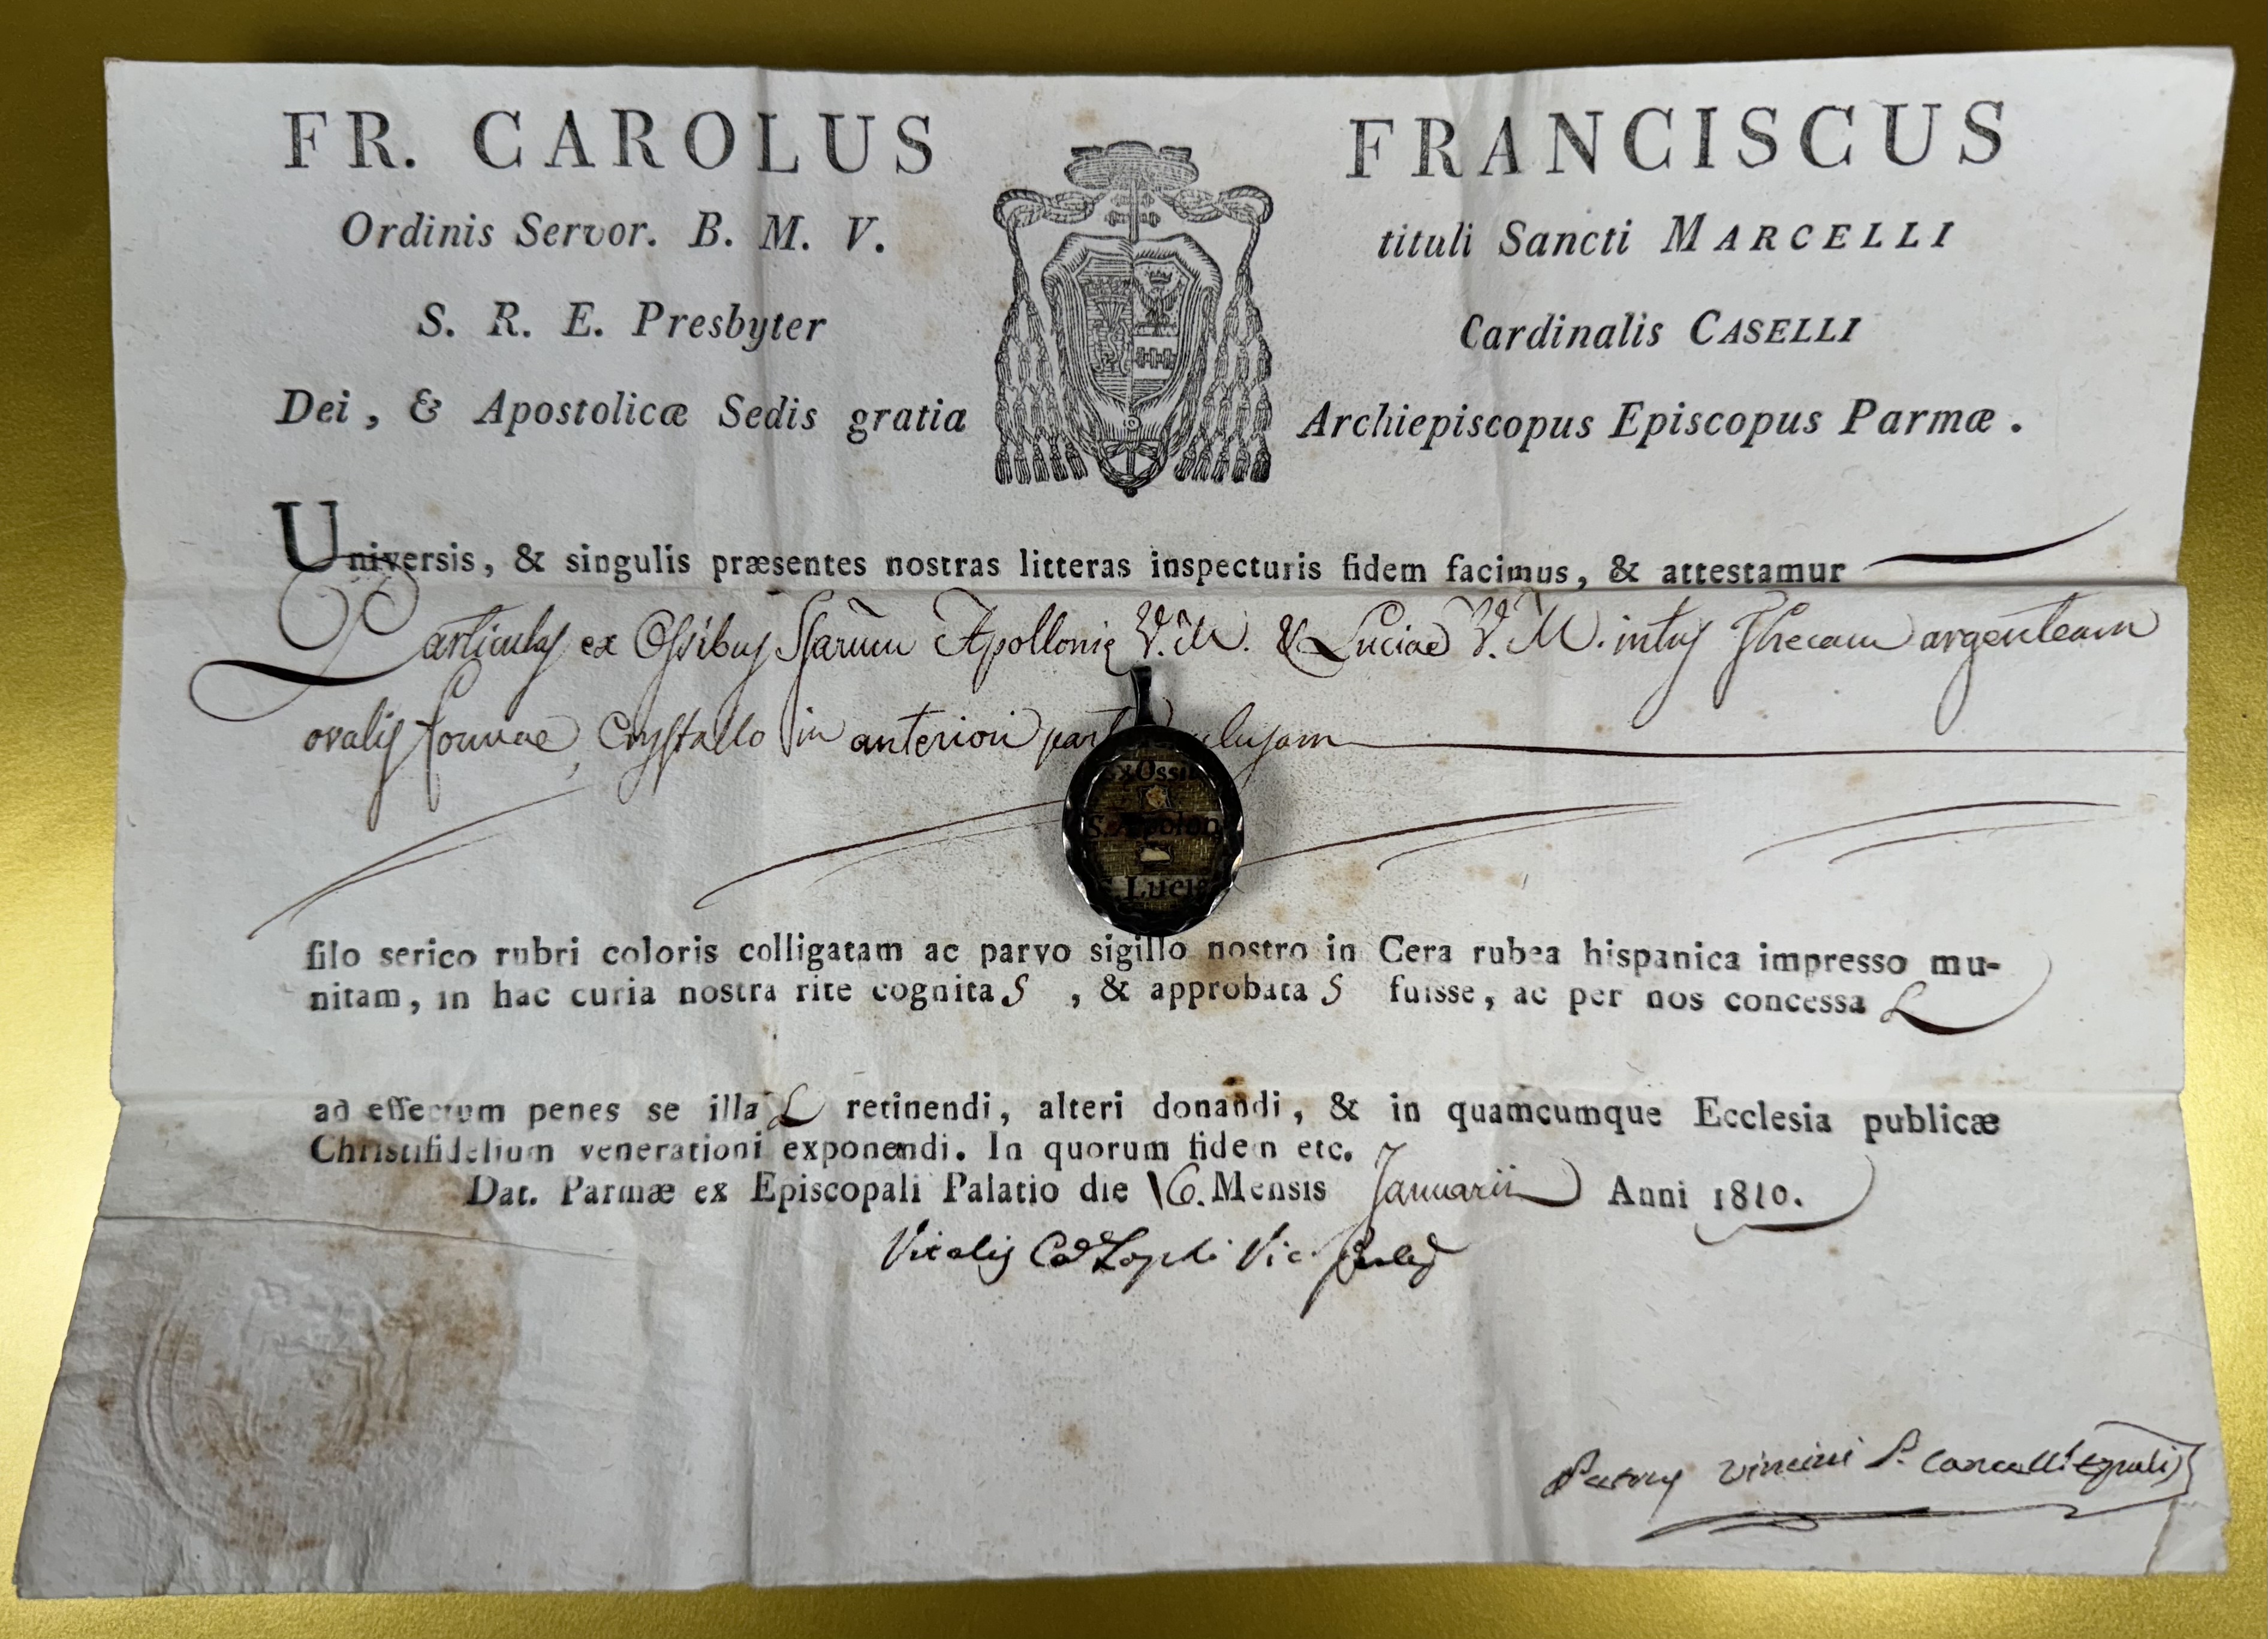 FR. CAROLUS FRANCISCUS
Ordinis Servor. B. M. V. tituli Sancti MARCELLI
S. R. E. Presbyter Cardinalis CASELLI
Dei, & Apostolicæ Sedis gratia Archiepiscopus Episcopus Parmæ.
Universis, & singulis præsentes nostras litteras inspecturis fidem facimus, & attestamur
Particulas ex Ossibus SSarum Apolloniæ V. M. & Luciae V. M. intus Thecam argenteam
ovalis formae, Crystallo in anteriori
Ossi
S. Apolon
S. Lucia
filo serico rubri coloris colligatam ac parvo sigillo nostro in Cera rubea hispanica impresso mu-
nitam, in hac curia nostra rite cognitas, & approbatas fuisse, ac per nos concessa
ad effectum penes se illa retinendi, alteri donandi, & in quamcumque Ecclesia publicæ
Christifidelium venerationi exponendi. In quorum fidem etc.
Dat. Parmæ ex Episcopali Palatio die 16. Mensis Januarii Anni 1810.
Vitalis Vic.